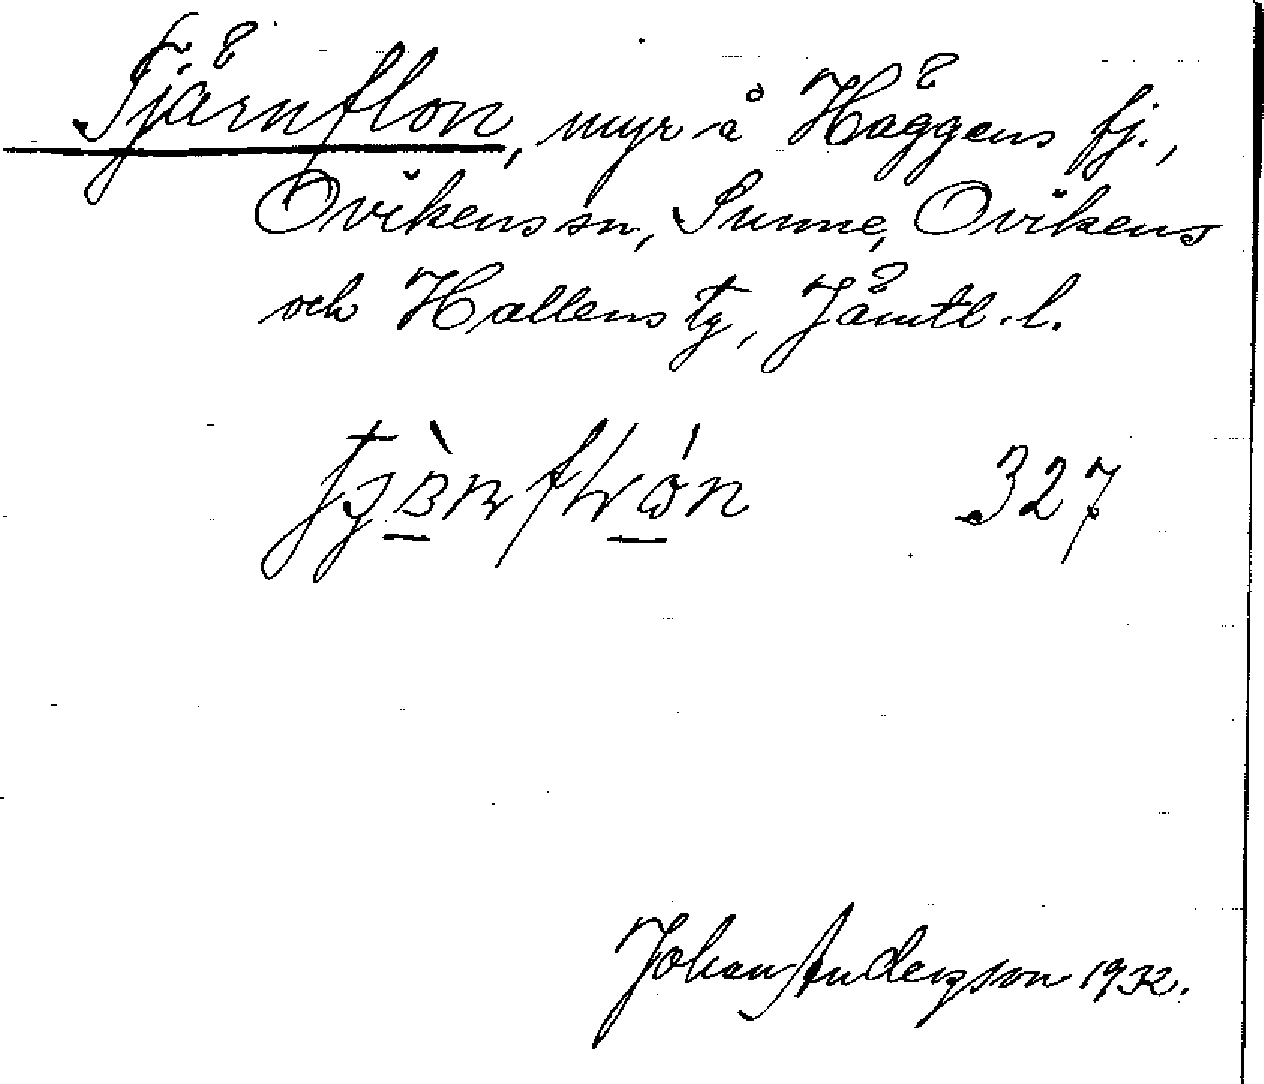 Tjärnflon, myr å Häggens fj.,
Ovikens sn, Sunne, Ovikens
och Hallens tg, Jämtl. l.
327
Johan Anderson 1932.